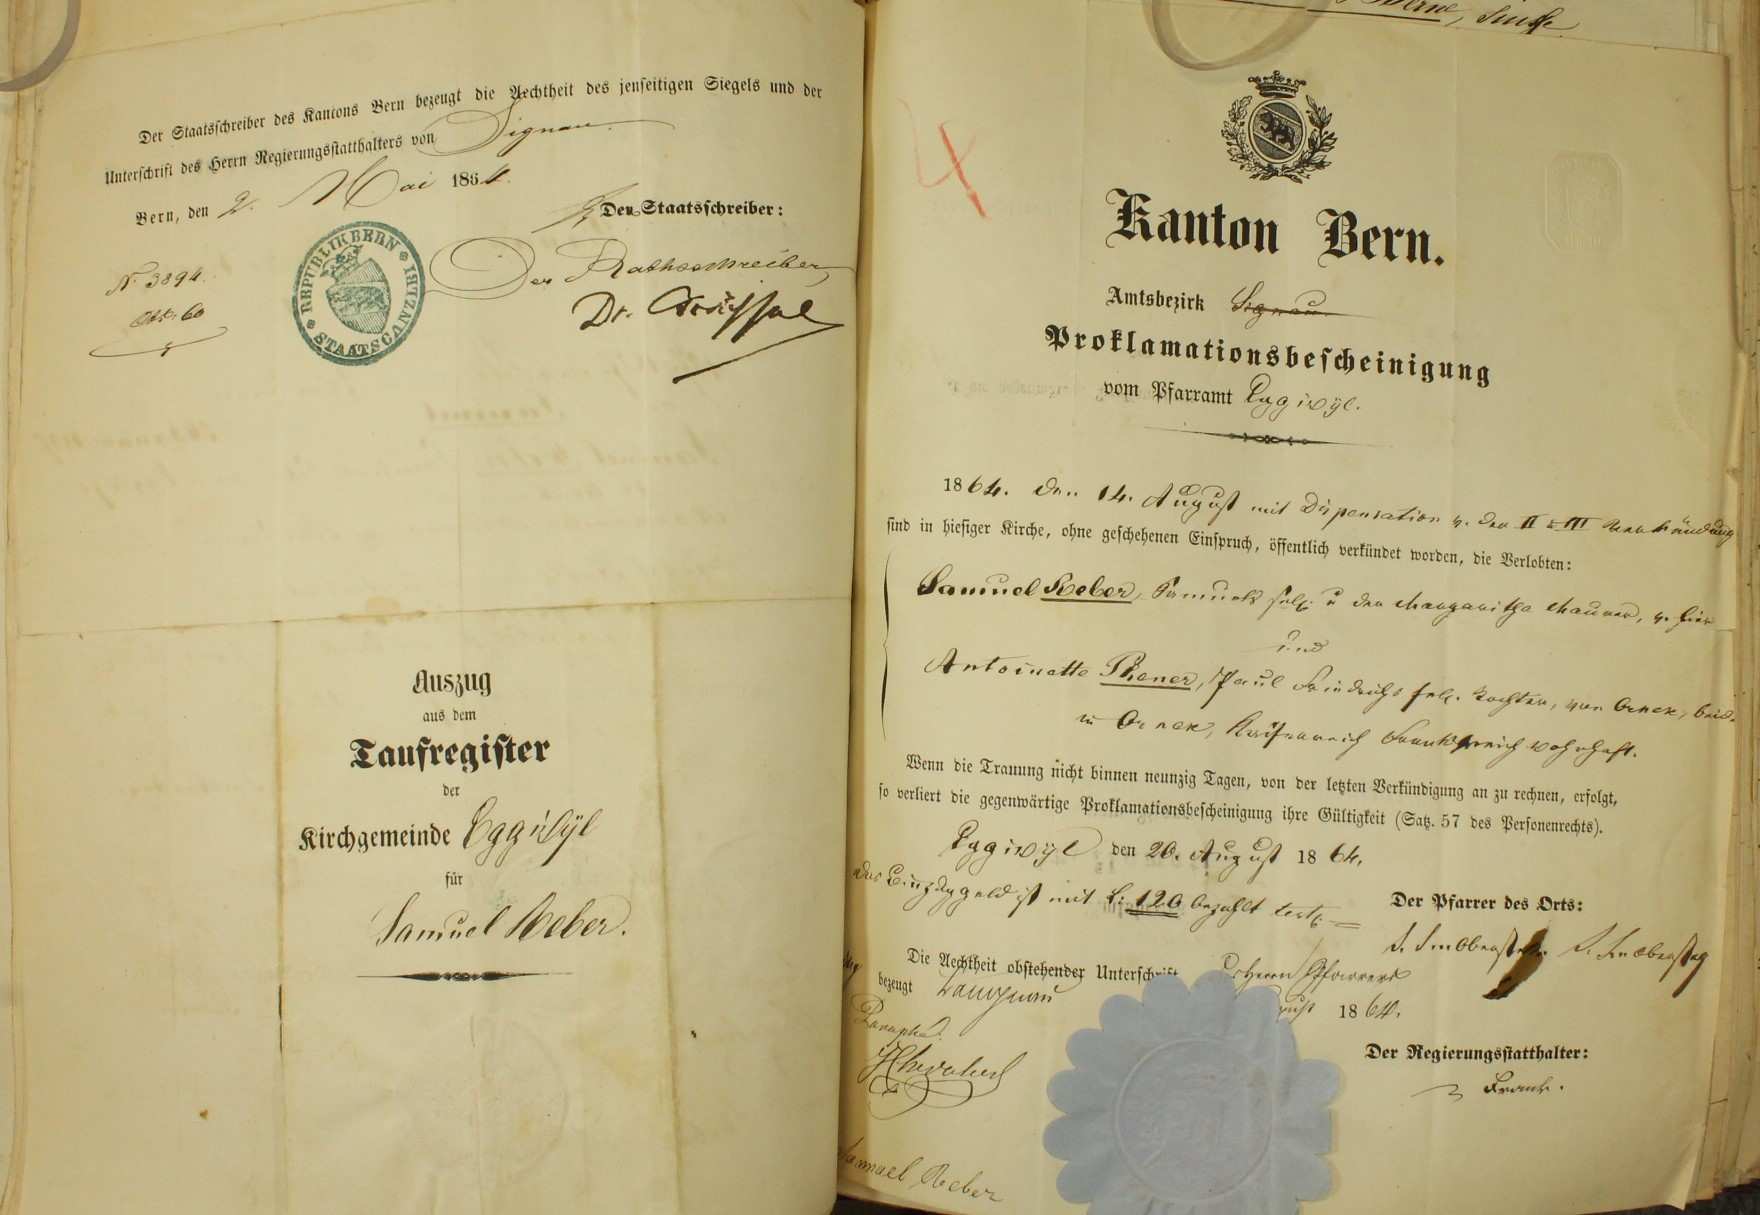 Der Staatsschreiber des Kantons Bern bezeugt die Aechtheit des jenseitigen Siegels und der
Unterschrift des Herrn Regierungsstatthalters von Signau.
Bern, den 2. Mai 1864.
Der Staatsschreiber:
N° 3894.
REPUBLIK BERN
STAATSCANZLEI
Der Rathsschreiber
Dr.
Auszug
aus dem
Taufregister
der
Kirchgemeinde Eggiwyl
für
Samuel Reber.
Kanton Bern.
Amtsbezirk Signau
Proklamationsbescheinigung
vom Pfarramt Eggiwyl.
1864. den 14. August mit Dispensation v. der II & III Verkündung
sind in hiesiger Kirche, ohne geschehenen Einspruch, öffentlich verkündet worden, die Verlobten:
Samuel Reber, Samuels sel. u der Margaritha Maurer, v. hier
und
Antoinette Thener, Paul Friedrichs sel. Tochter, von Ornex, beide
in Ornex, Kaiserreich Frankreich wohnhaft.
Wenn die Trauung nicht binnen neunzig Tagen, von der letzten Verkündigung an zu rechnen, erfolgt,
so verliert die gegenwärtige Proklamationsbescheinigung ihre Gültigkeit (Satz. 57 des Personenrechts).
Eggiwyl den 20. August 1864.
Das Einzuggeld ist mit f: 120 bezahlt
Der Pfarrer des Orts:
Die Aechtheit obstehender Unterschrift Herrn Pfarrers
bezeugt Langnau 1864.
Der Regierungsstatthalter:
Samuel Reber